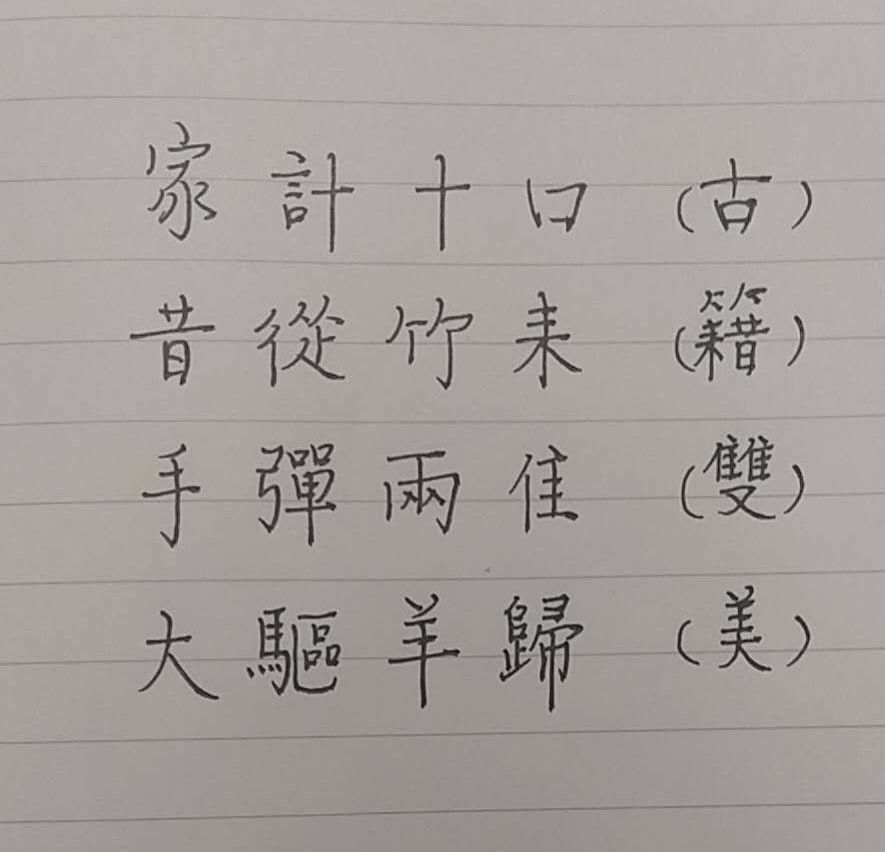 家計十口（古）
昔從竹耒（籍）
手彈兩隹（雙）
大驅羊歸（美）